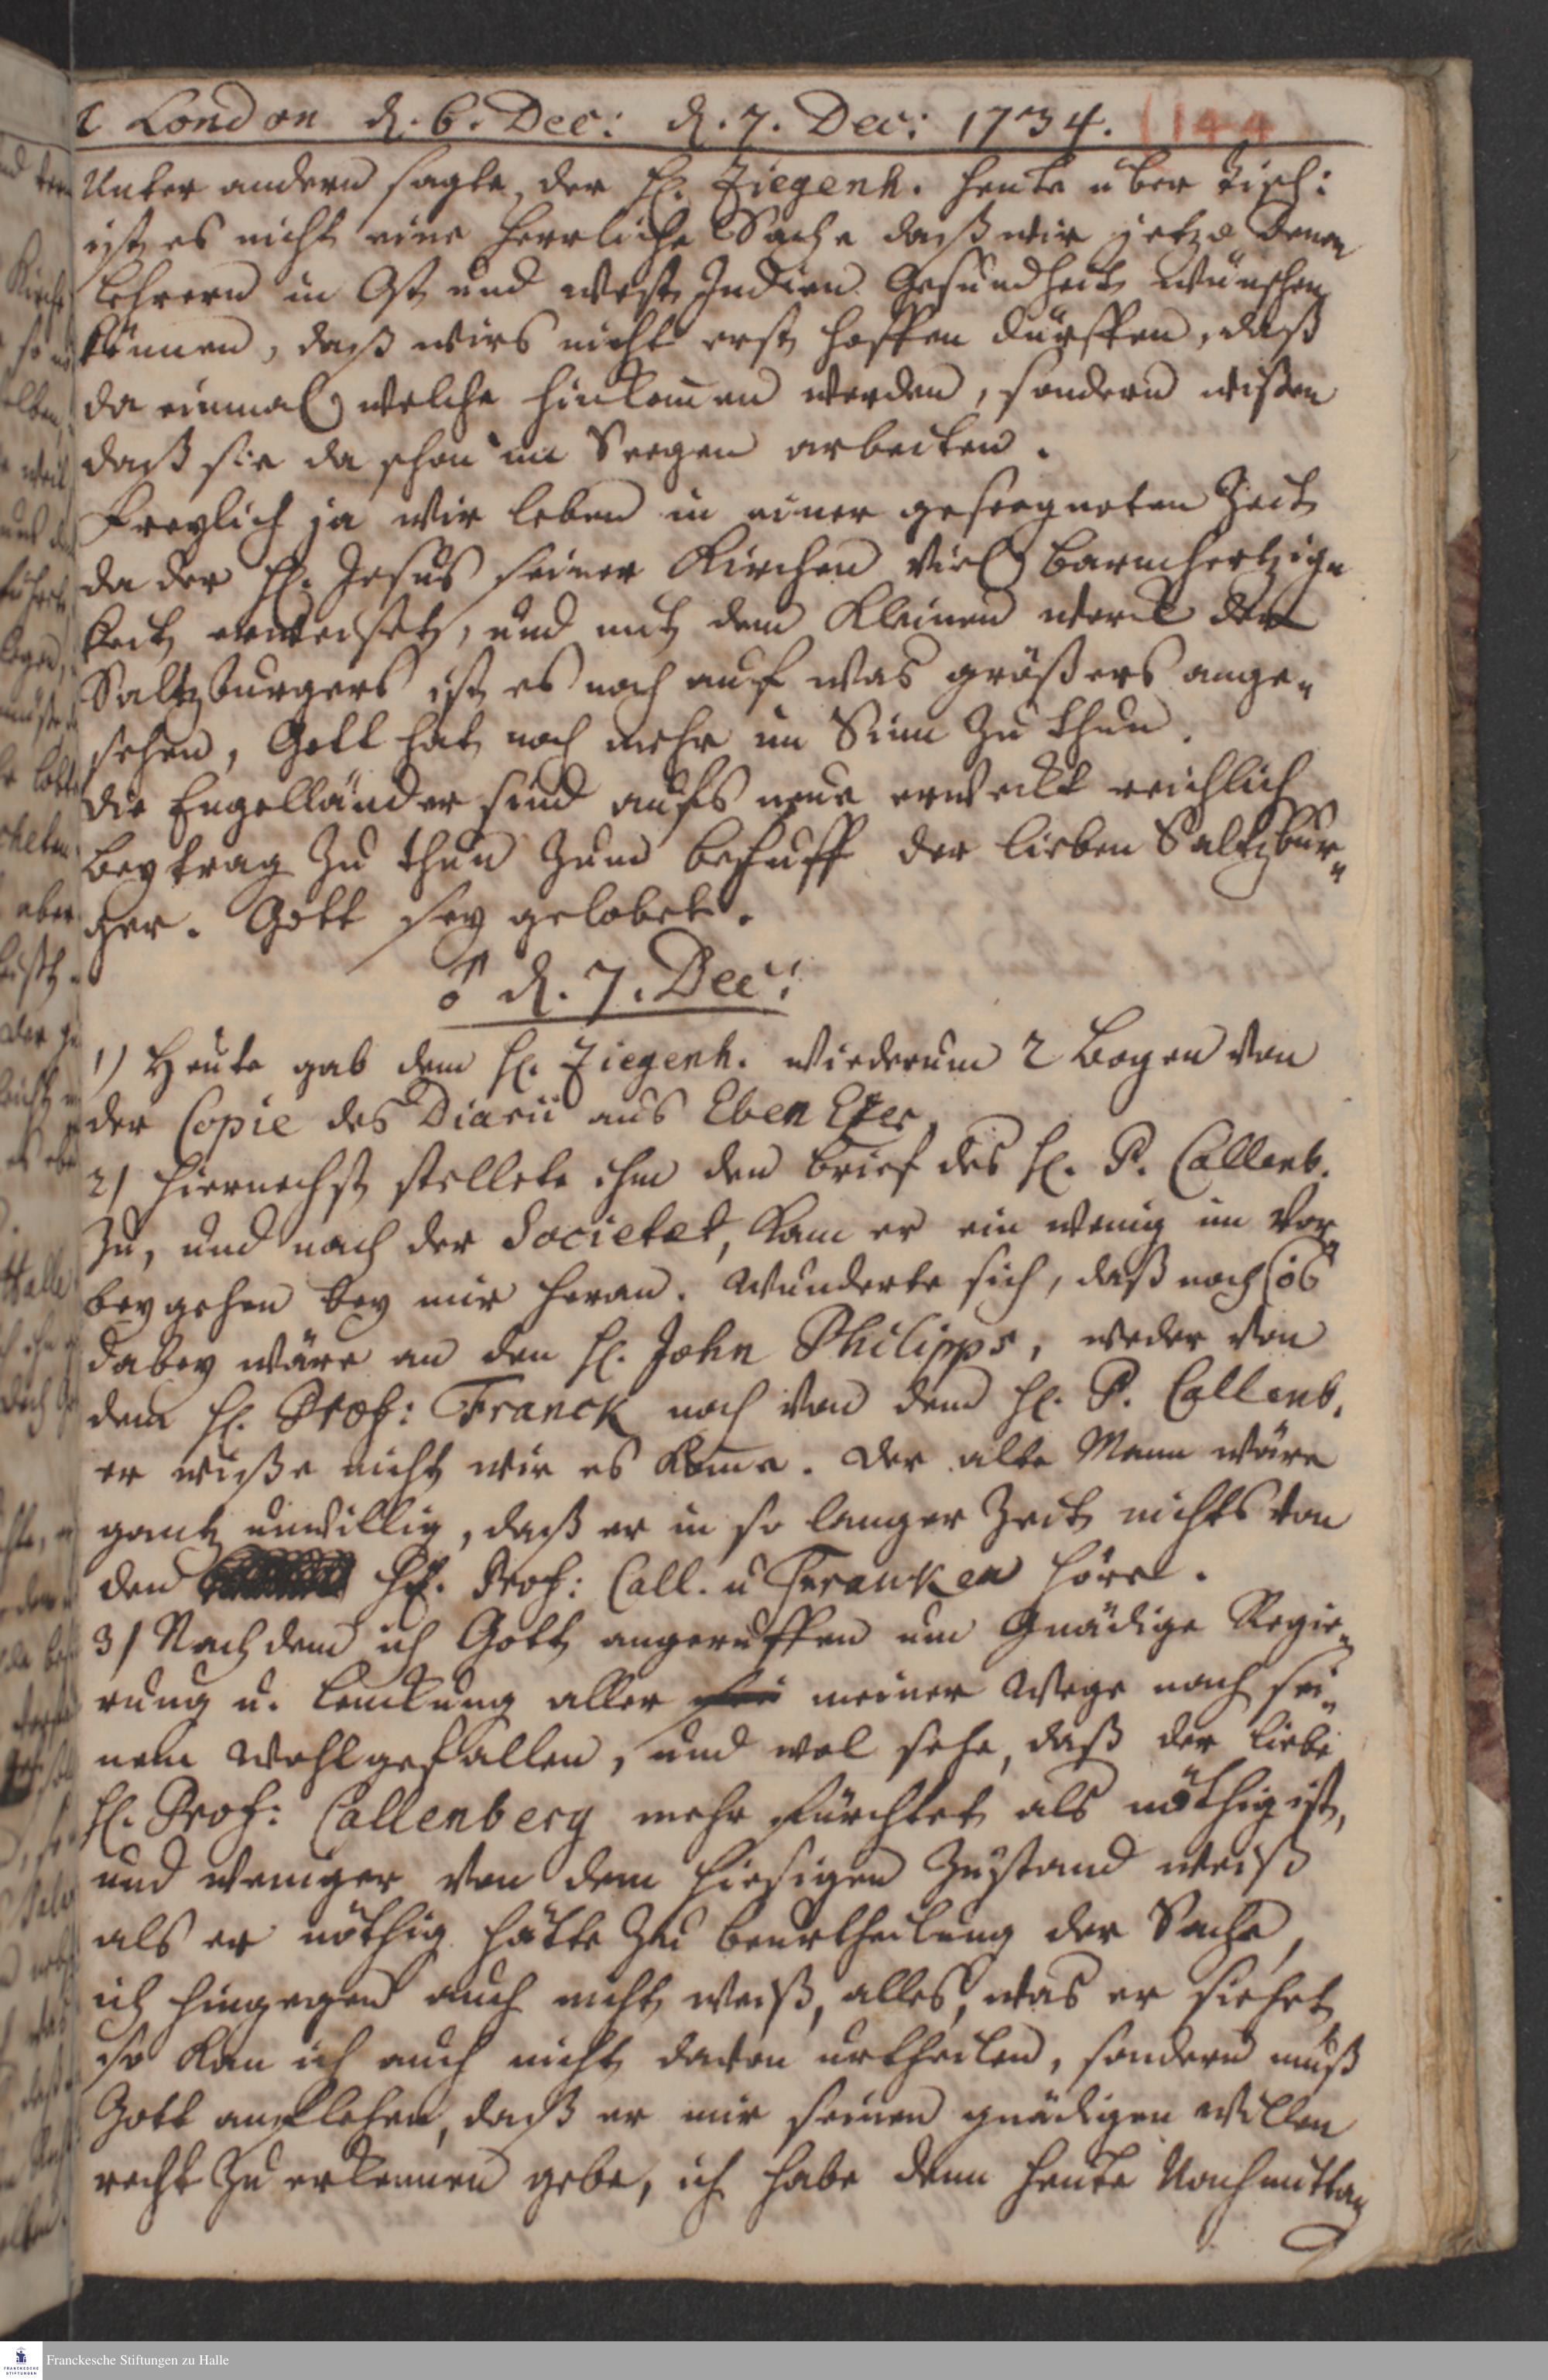 London d. 6. Dec: d. 7. Dec: 1734. (144
Unter andern sagte der H. Ziegenh. heute über Tisch:
ist es nicht eine herrliche Sache daß wir jetzo denen
Lehrern in Ost und West Indien Gesundheit wünschen
können, daß wirs nicht erst hoffen dürffen, daß
da einmal welche hinkommen werden, sondern wißen
daß sie da schon im Seegen arbeiten.
Freylich ja wir leben in einer geseegneten Zeit
da der H. Jesus seiner Kirchen viel barmhertzig-
keit erweiset, und mit dem Kleinen werck der
Saltzburgers ist es noch auf was größers ange-
sehen, Gott hat noch mehr im Sinn zu thun.
Die Engelländer sind aufs neue erweckt reichlich
beytrag zu thun zum behuff der lieben Saltzbur-
ger. Gott sey gelobet.
♂ d. 7. Dec:
1) Heute gab dem H. Ziegenh. wiederum 2 Bogen von
der Copie des Diarii aus Eben Ezer.
2) hiernechst stellete ihm den brief des H. P. Callenb.
zu, und nach der Societet, kam er ein wenig im vor-
beygehen bey mir heran. Wunderte sich, daß noch
dabey wäre an den H. John Philipps, weder von
dem H. Prof: Franck noch von dem H. P. Callenb.
er wuße nicht wie es komme. Der alte Mann wäre
gantz unwillig, daß er in so langer Zeit nichts von
den HH. Prof: Call. u Francken höre.
3) Nachdem ich Gott angeruffen um gnädige Regie-
rung u. Lenckung aller meiner Wege nach sei-
nem Wohlgefallen, und wol sehe, daß der liebe
H. Prof: Callenberg mehr fürchtet als nöthig ist,
und weniger von dem hiesigen Zustand weiß
als er nöthig hätte zu beurtheilung der Sache,
ich hingegen auch nicht weiß, alles, was er siehet,
so kan ich auch nicht davon urtheilen, sondern muß
Gott anflehen, daß er mir seinen gnädigen Willen
recht zu erkennen gebe, ich habe denn heute Nachmittag
Franckesche Stiftungen zu Halle
FRANCKESCHE STIFTUNGEN